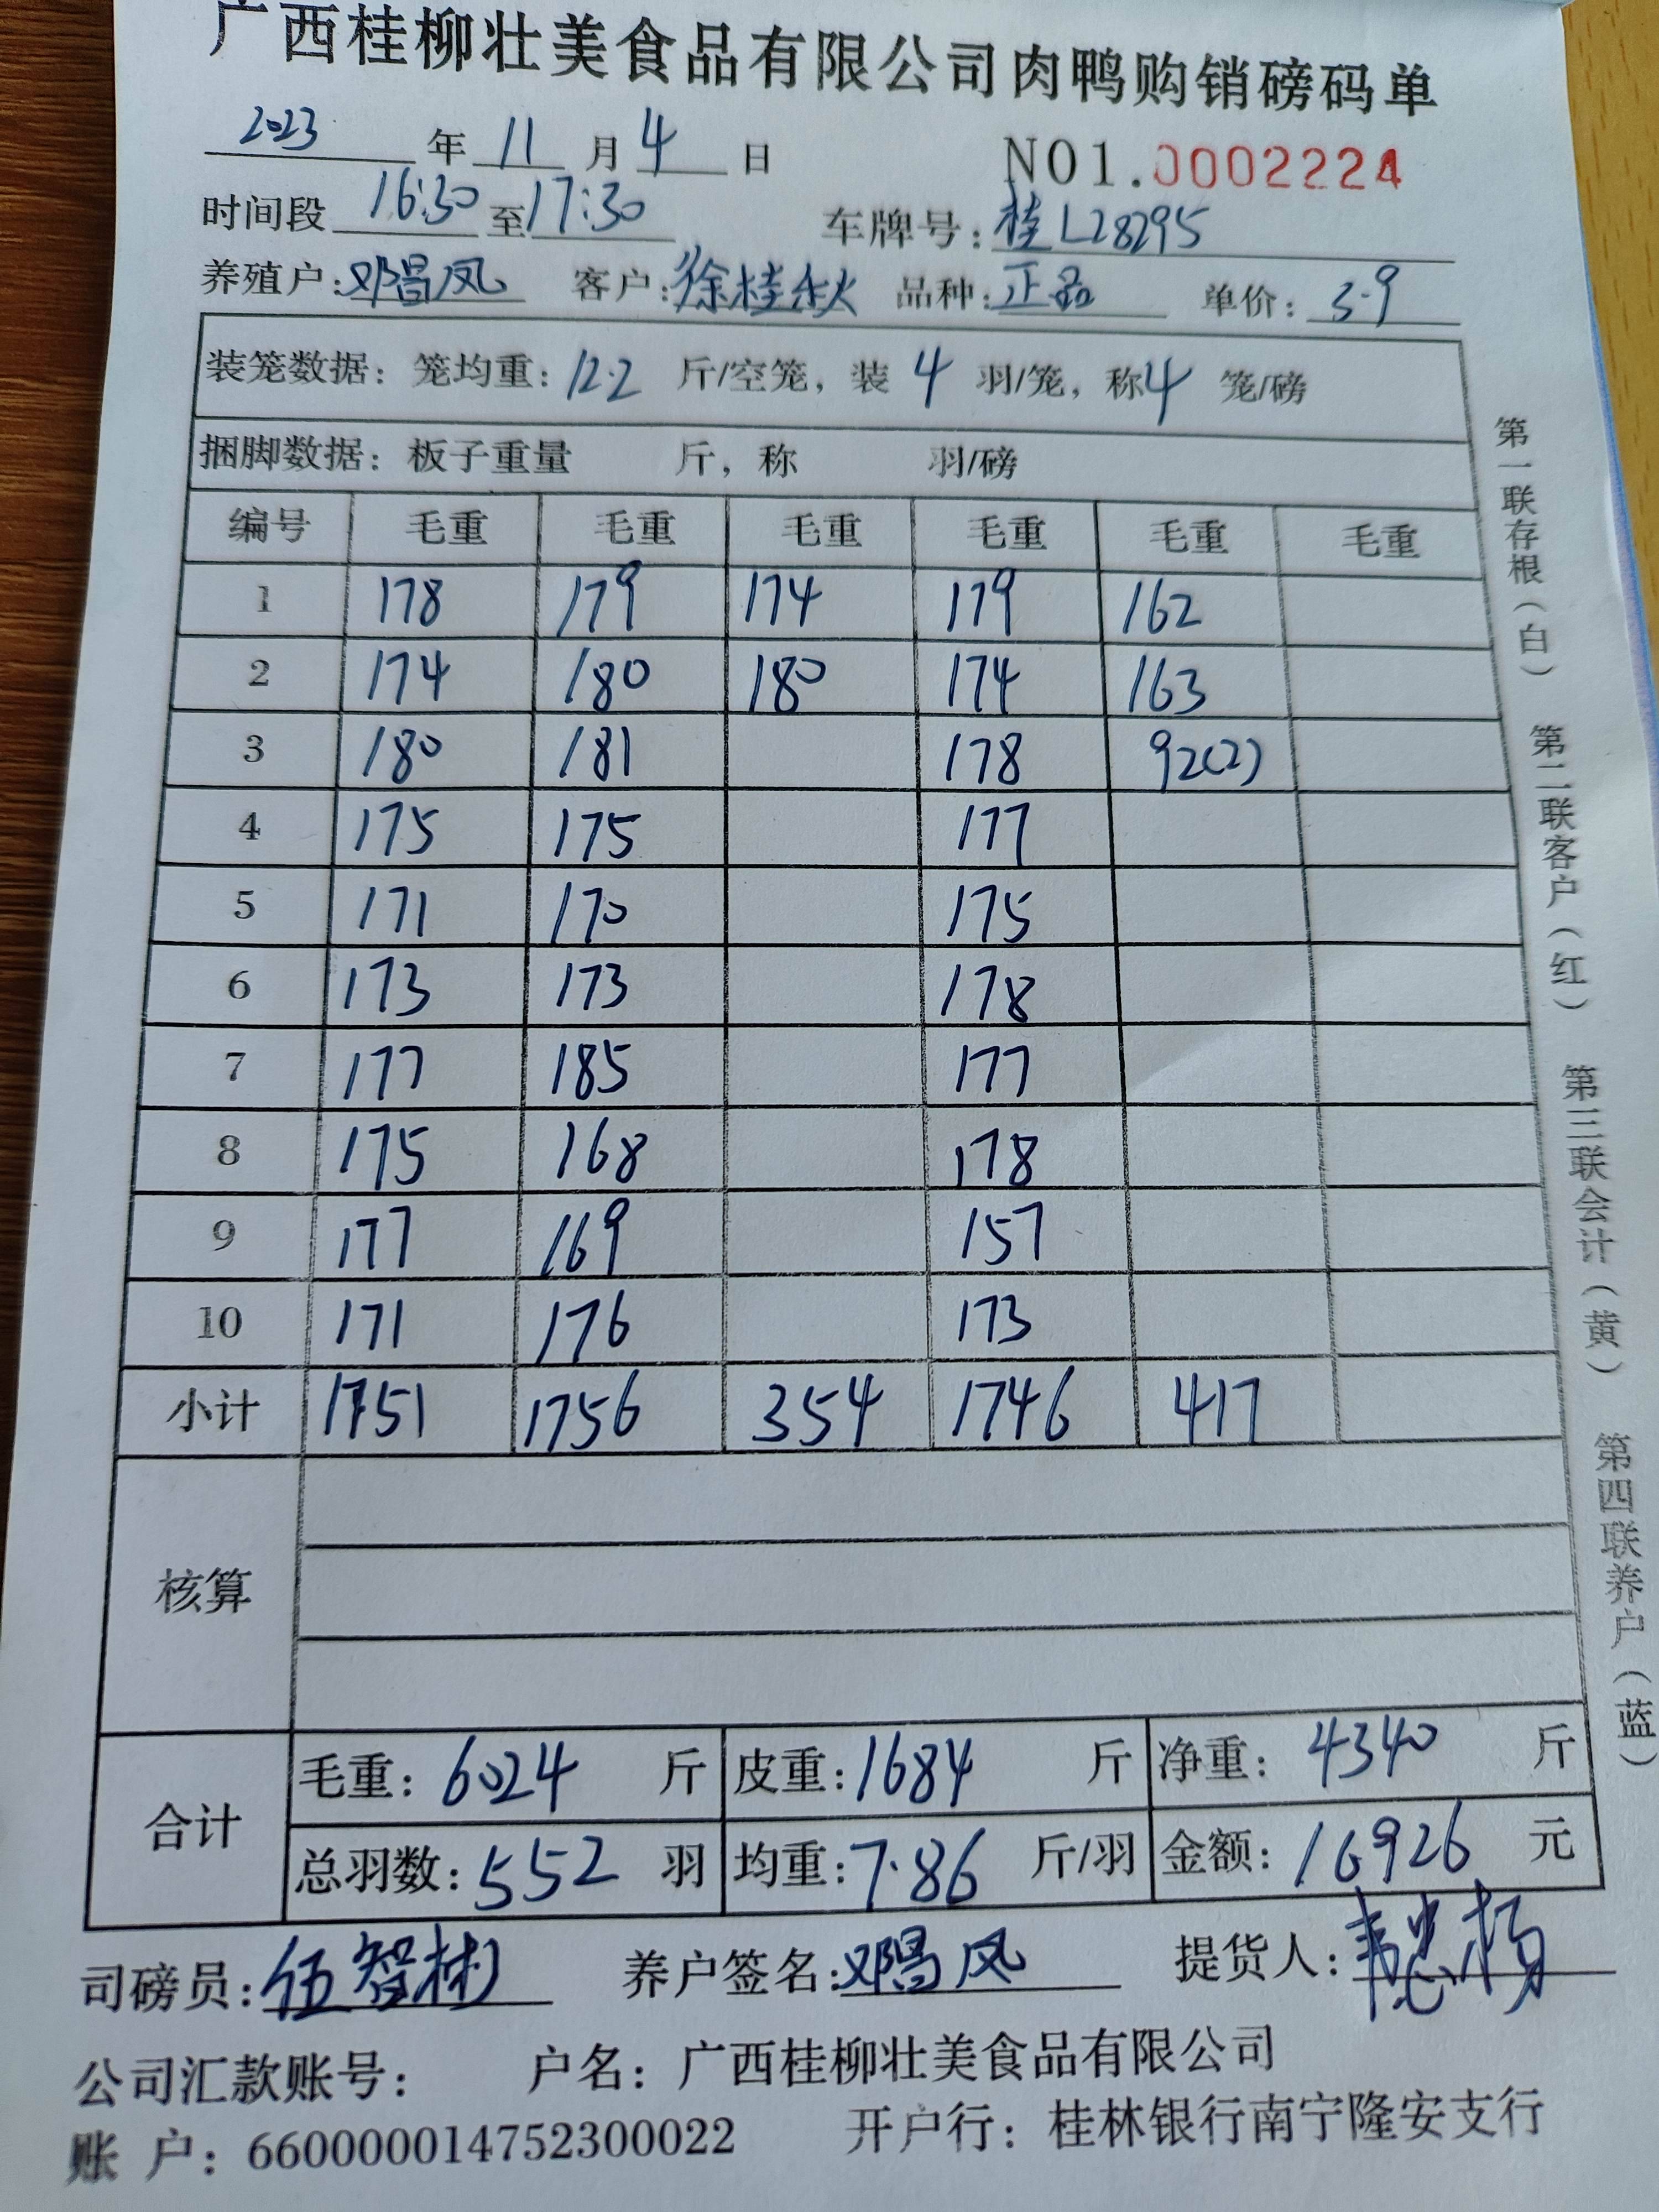 广西桂柳壮美食品有限公司肉鸭购销磅码单
2023 年 11 月 4 日 NO1.0002224
时间段 16:30 至 17:30 车牌号: 桂L28295
养殖户: 邓昌凤 客户: 徐桂秋 品种: 正品 单价: 3.9
装笼数据: 笼均重: 12.2 斤/空笼, 装 4 羽/笼, 称 4 笼/磅
捆脚数据: 板子重量 斤, 称 羽/磅
编号 毛重 毛重 毛重 毛重 毛重 毛重
1 178 179 174 179 162
2 174 180 180 174 163
3 180 181 178 92(2)
4 175 175 177
5 171 170 175
6 173 173 178
7 177 185 177
8 175 168 178
9 177 169 157
10 171 176 173
小计 1751 1756 354 1746 417
核算
合计
毛重: 6024 斤 皮重: 1684 斤 净重: 4340 斤
总羽数: 552 羽 均重: 7.86 斤/羽 金额: 16926 元
司磅员: 伍智彬 养户签名: 邓昌凤 提货人: 韦忠杨
公司汇款账号: 户名: 广西桂柳壮美食品有限公司
账 户: 660000014752300022 开户行: 桂林银行南宁隆安支行
第一联存根(白) 第二联客户(红) 第三联会计(黄) 第四联养户(蓝)